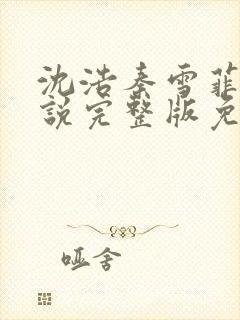 沈浩秦雪菲
说完整版免
哑舍